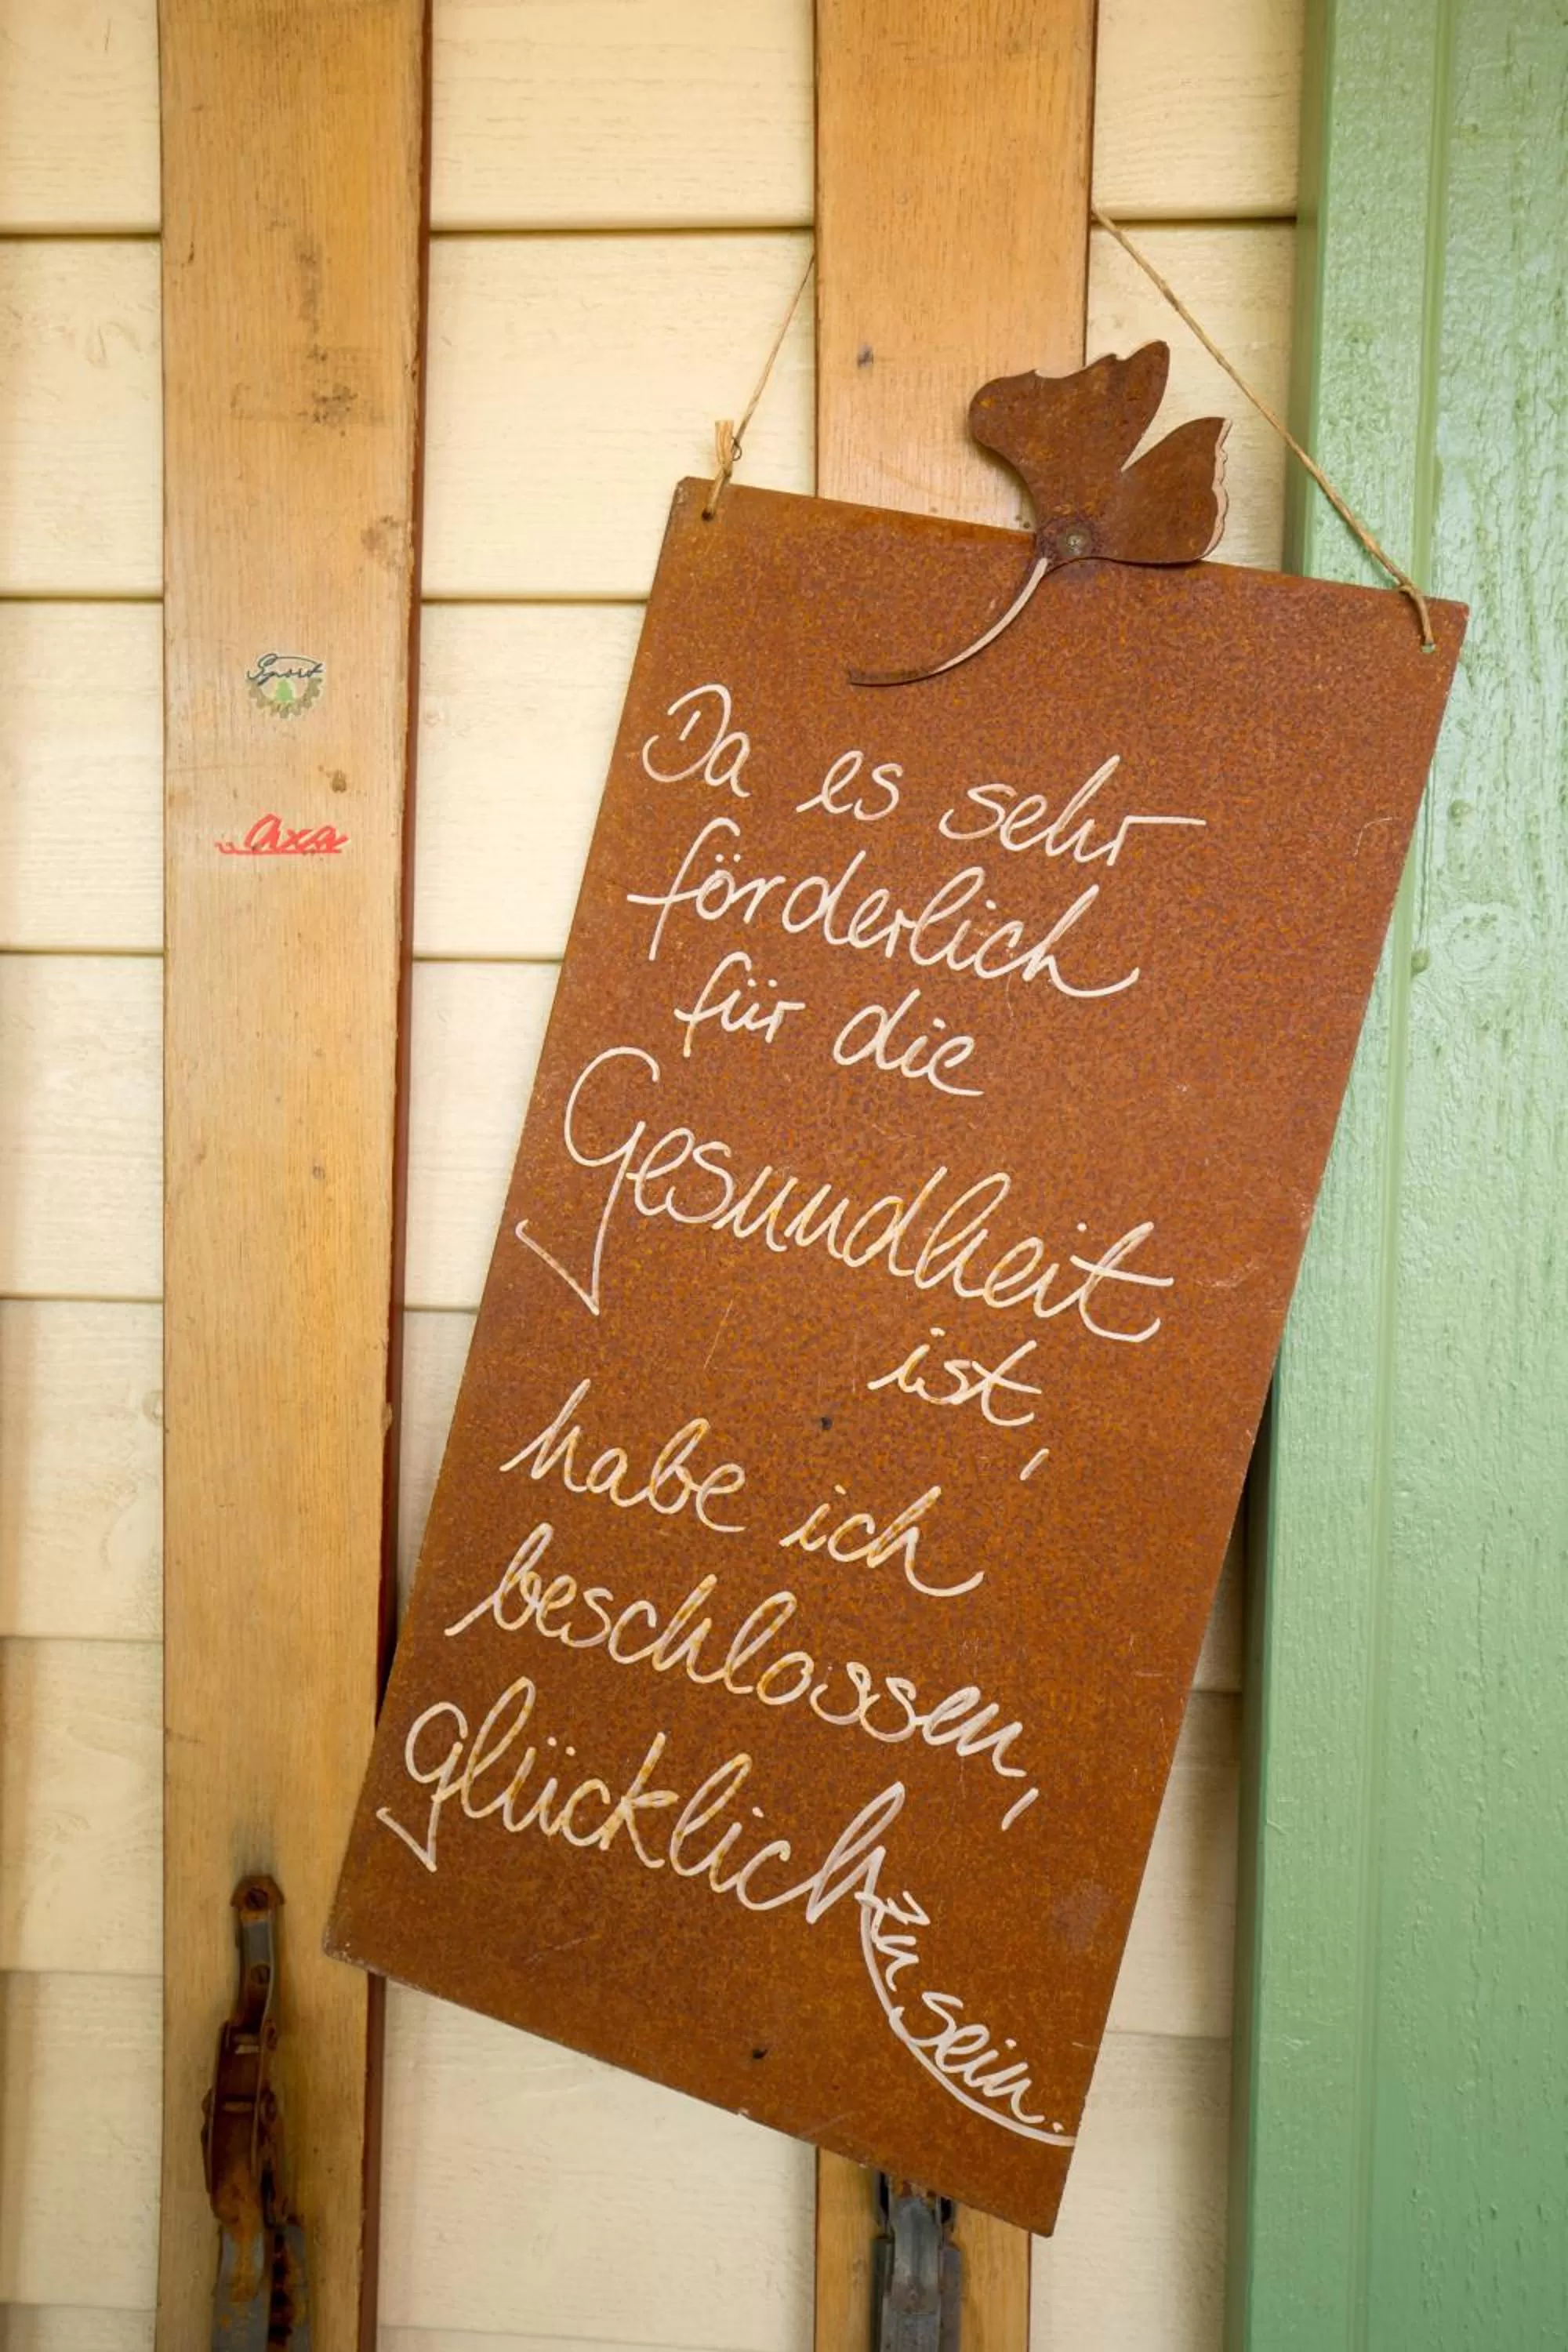 Sport
axa
Da es sehr
förderlich
für die
Gesundheit
ist,
habe ich
beschlossen,
glücklich
zu sein.